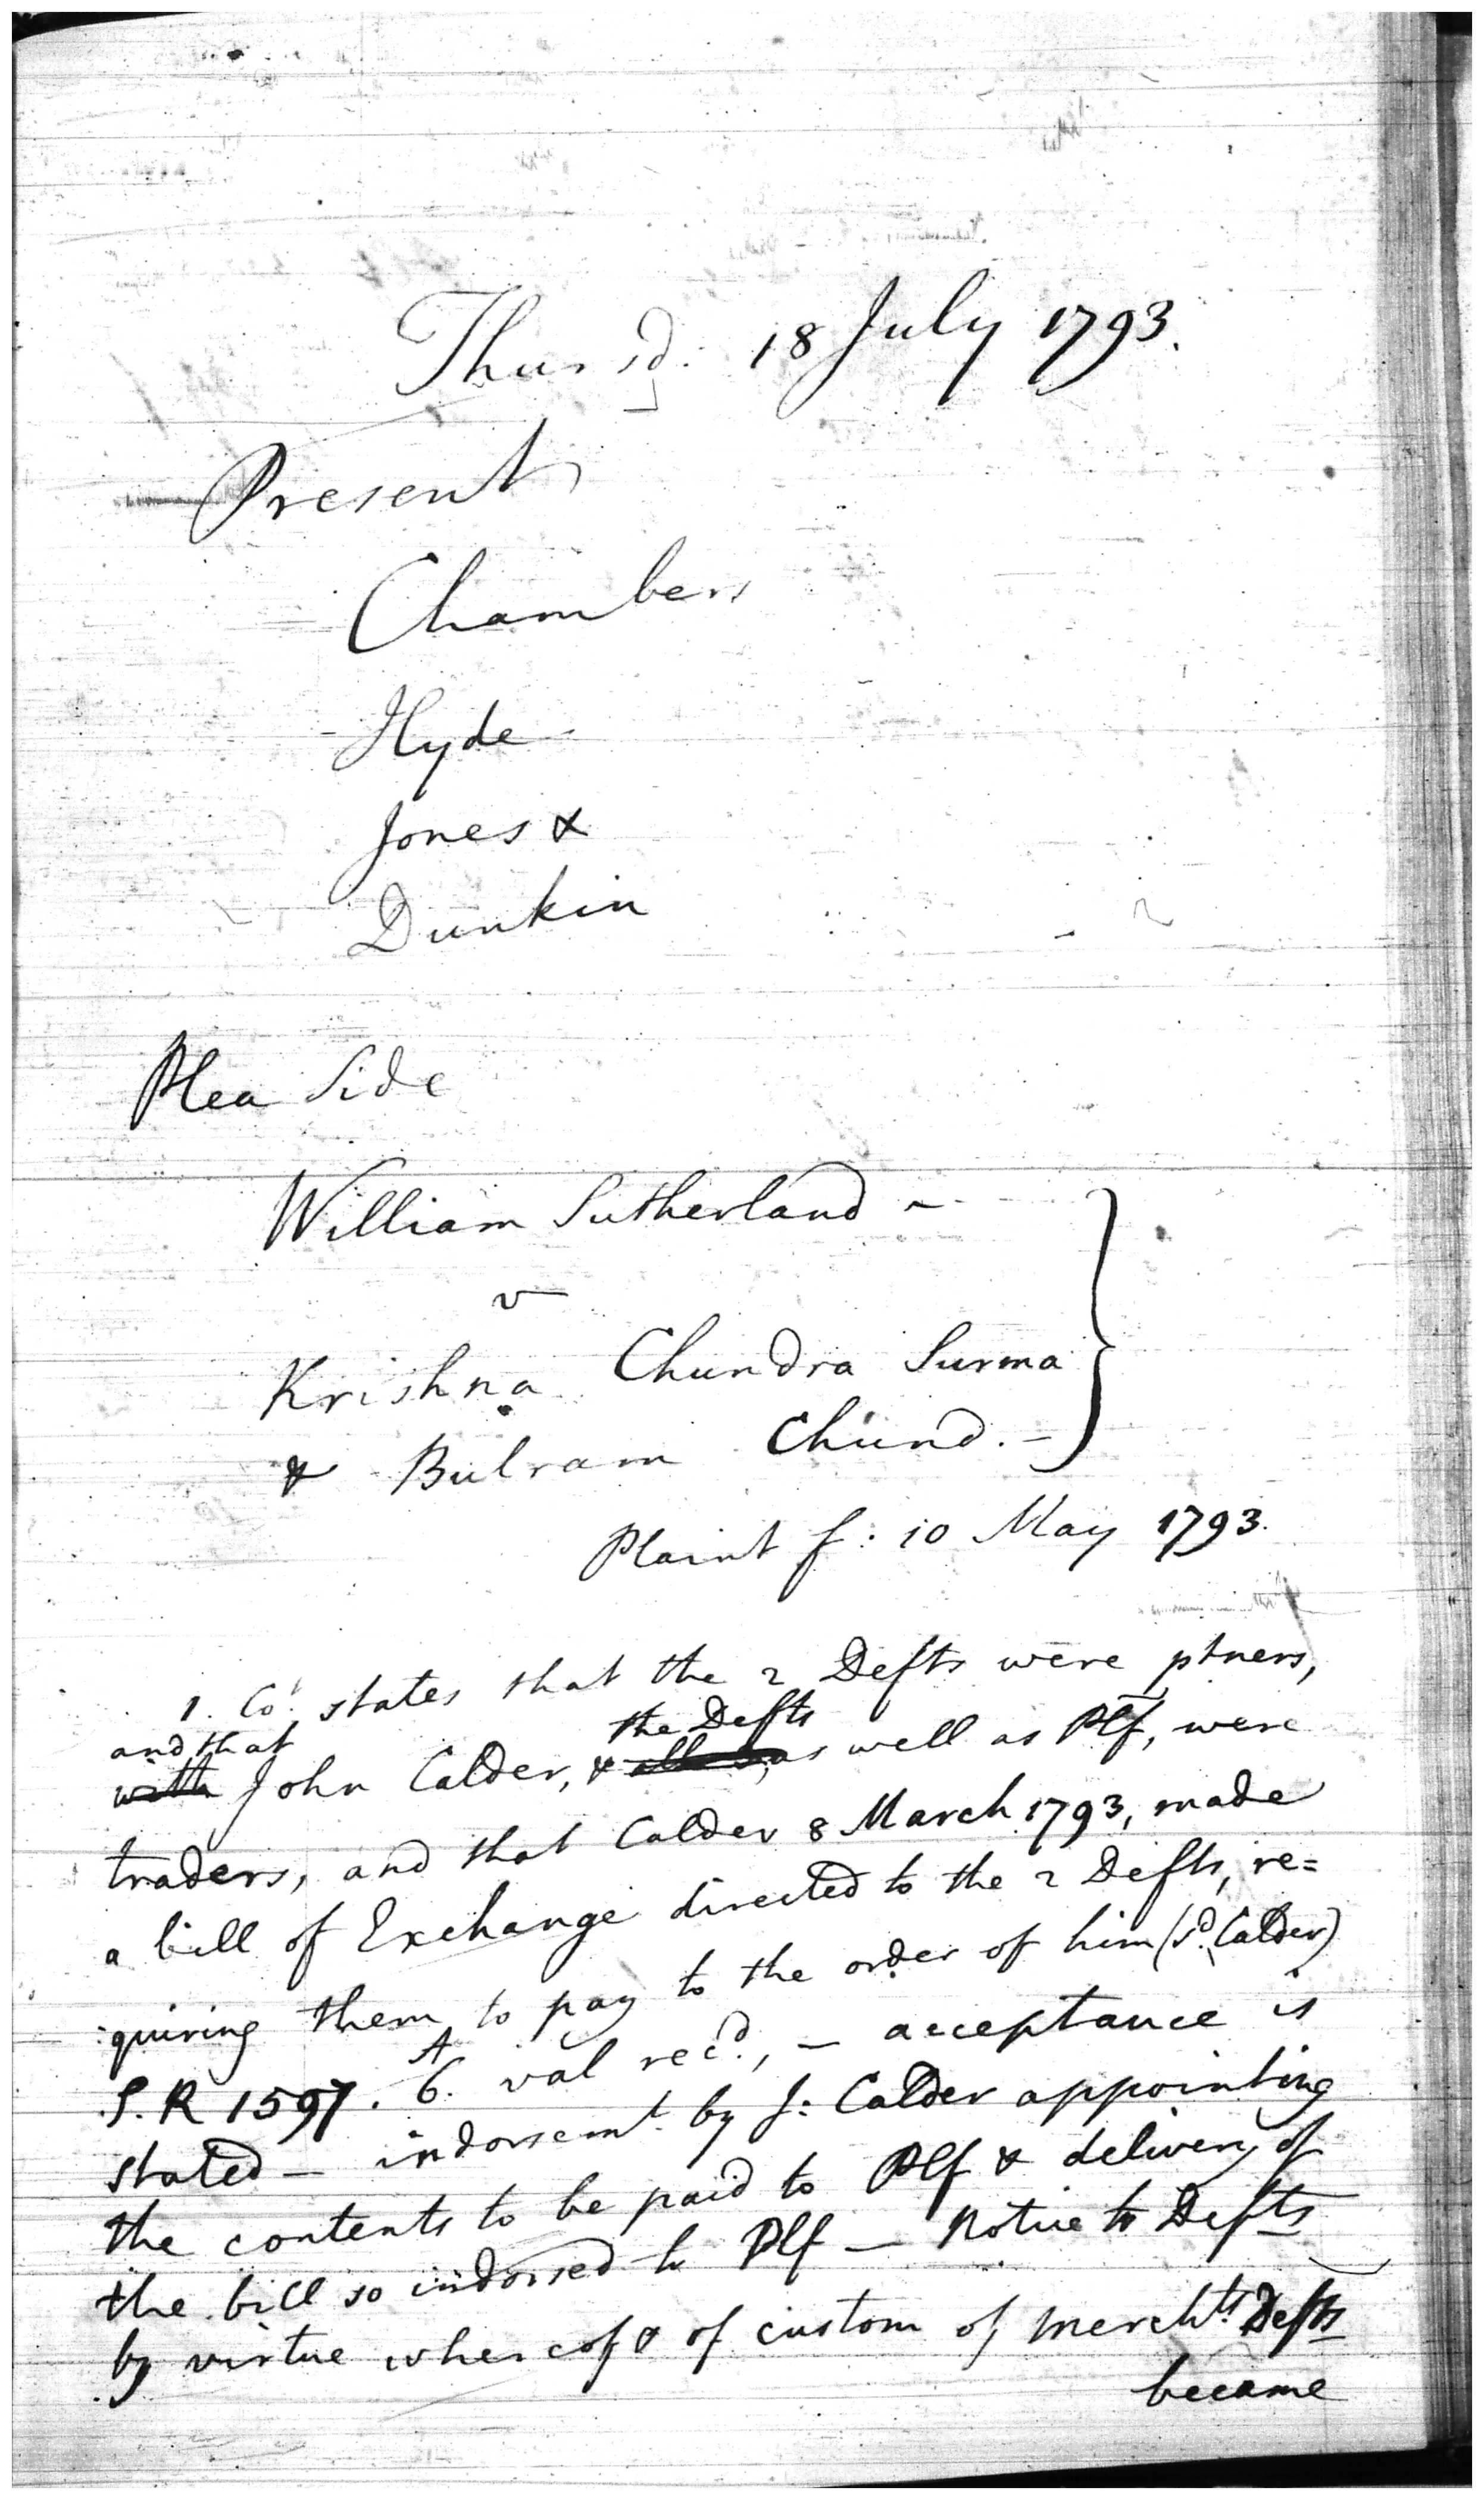 Thursd: 18 July 1793.
Present
Chambers
Hyde
Jones &
Dunkin
Plea Side
William Sutherland -
v
Krishna Chundra Surma
& Bulram Chund. -
Plaint f: 10 May 1793.
1. Co: states that the 2 Defts were ptners,
and that the Defts
with John Calder, & as well as Plf, were
traders, and that Calder 8 March 1793, made
a bill of Exchange directed to the 2 Defts, re=
:quiring them to pay to the order of him (sd. Calder)
S.R 1597. A 6. val recd., - acceptance is
stated - indorsemt. by J: Calder appointing
the contents to be paid to Plf & delivery of
the bill so indorsed to Plf - Notice to Defts
by virtue whereof & of custom of Merchts. Defts
became